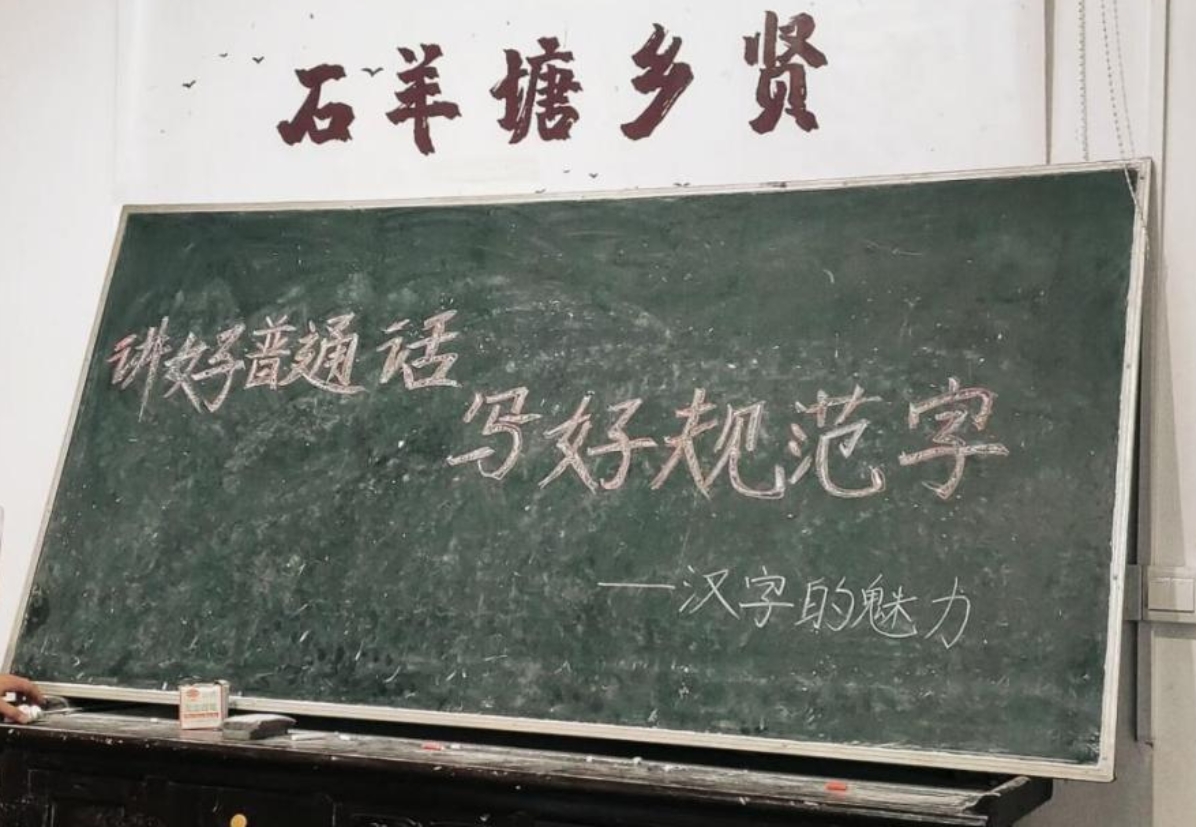 石羊塘乡贤
讲好普通话
写好规范字
——汉字的魅力